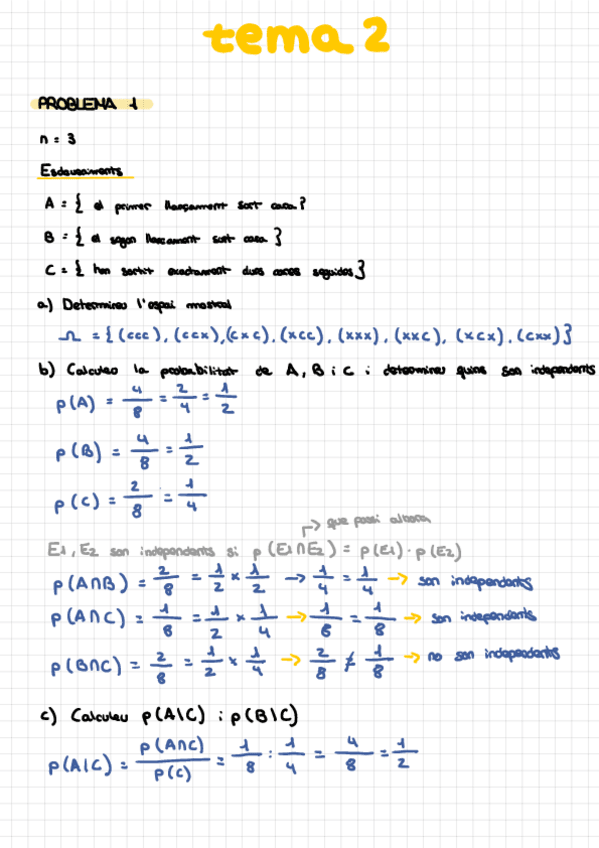 tema 2
PROBLEMA 1
n = 3
Esdeveniments
A = { el primer llançament surt cara }
B = { el segon llançament surt cara }
C = { han sortit exactament dues cares seguides }
a) Determineu l'espai mostral
Ω = { (ccc), (ccx), (cxc), (xcc), (xxx), (xxc), (xcx), (cxx) }
b) Calculeu la probabilitat de A, B i C i determineu quins son independents
p(A) = 4/8 = 2/4 = 1/2
p(B) = 4/8 = 1/2
p(C) = 2/8 = 1/4
↱ que passi alhora
E1, E2 son independents si p(E1∩E2) = p(E1)·p(E2)
p(A∩B) = 2/8 = 1/2 × 1/2 → 1/4 = 1/4 → son independents
p(A∩C) = 1/8 = 1/2 × 1/4 → 1/8 = 1/8 → son independents
p(B∩C) = 2/8 = 1/2 × 1/4 → 2/8 ≠ 1/8 → no son independents
c) Calculeu p(A|C) i p(B|C)
p(A|C) = p(A∩C)/p(C) = 1/8 : 1/4 = 4/8 = 1/2